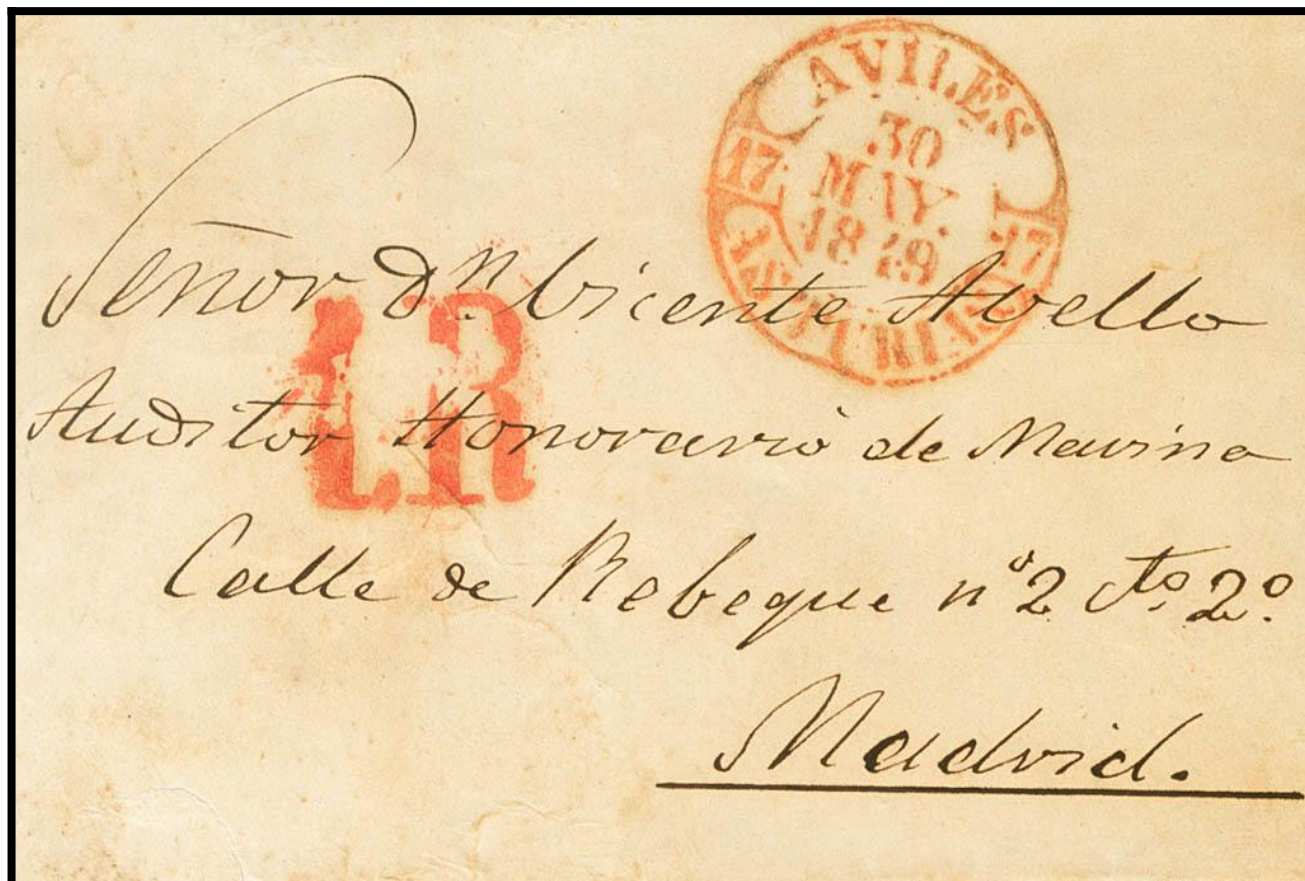 AVILÉS
30
MAY.
1849
17 17
ASTURIAS
1.R
Señor Dⁿ. Vicente Abello
Auditor Honorario de Marina
Calle de Rebeque nº 2 cto. 2º.
Madrid.